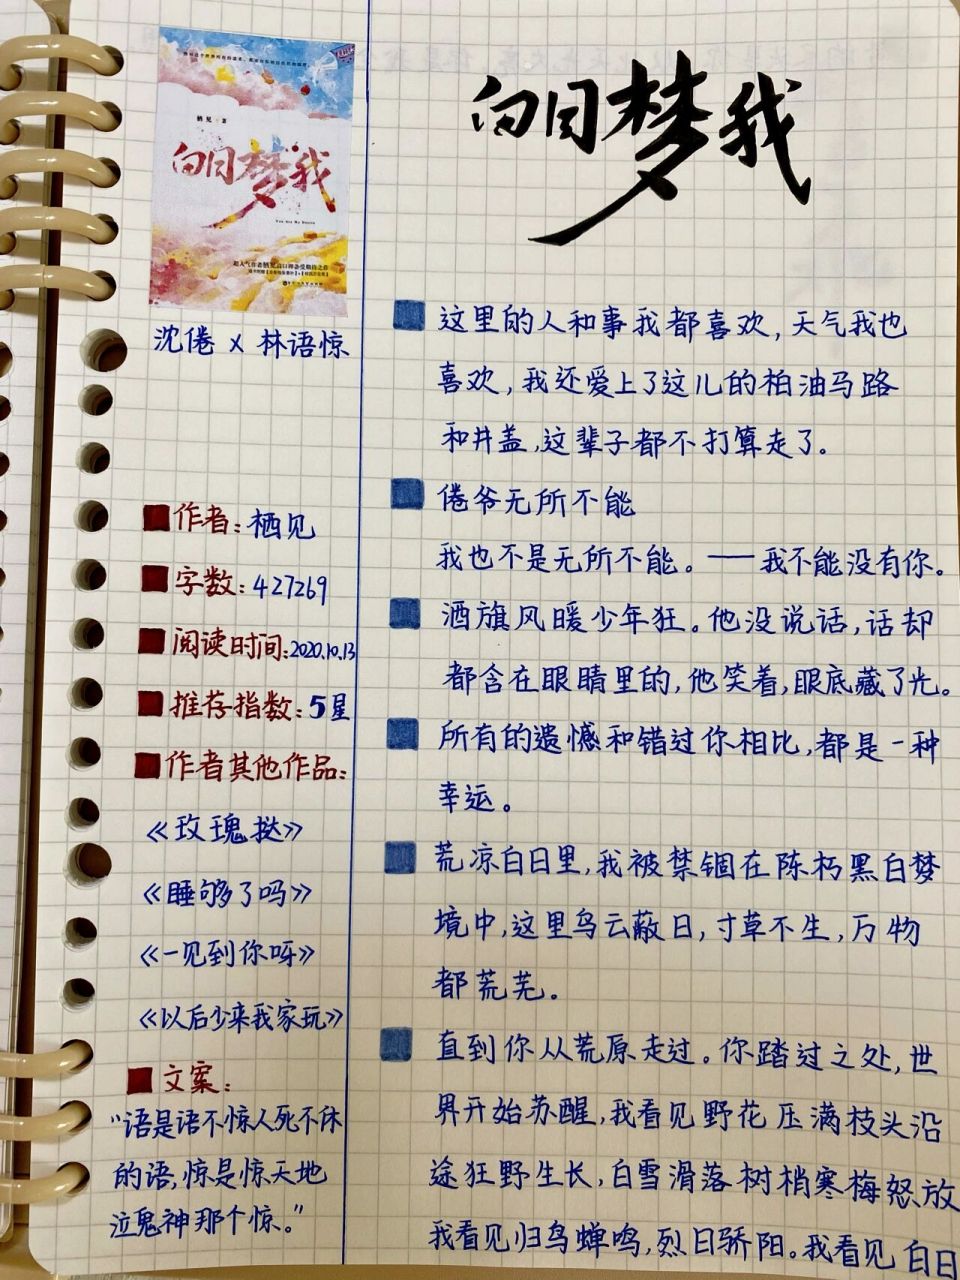 栖见·著
白日梦我
You Are My Desire
沈倦 x 林语惊
作者：栖见
字数：427269
阅读时间：2020.10.13
推荐指数：5星
作者其他作品：
《玫瑰挞》
《睡够了吗》
《一见到你呀》
《以后少来我家玩》
文案：
“语是语不惊人死不休
的语，惊是惊天地
泣鬼神那个惊。”
白日梦我
这里的人和事我都喜欢，天气我也
喜欢，我还爱上了这儿的柏油马路
和井盖，这辈子都不打算走了。
倦爷无所不能
我也不是无所不能。——我不能没有你。
酒旗风暖少年狂。他没说话，话却
都含在眼睛里的，他笑着，眼底藏了光。
所有的遗憾和错过你相比，都是一种
幸运。
荒凉白日里，我被禁锢在陈朽黑白梦
境中，这里乌云蔽日，寸草不生，万物
都荒芜。
直到你从荒原走过。你踏过之处，世
界开始苏醒，我看见野花压满枝头沿
途狂野生长，白雪滑落树梢寒梅怒放
我看见归鸟蝉鸣，烈日骄阳。我看见白日